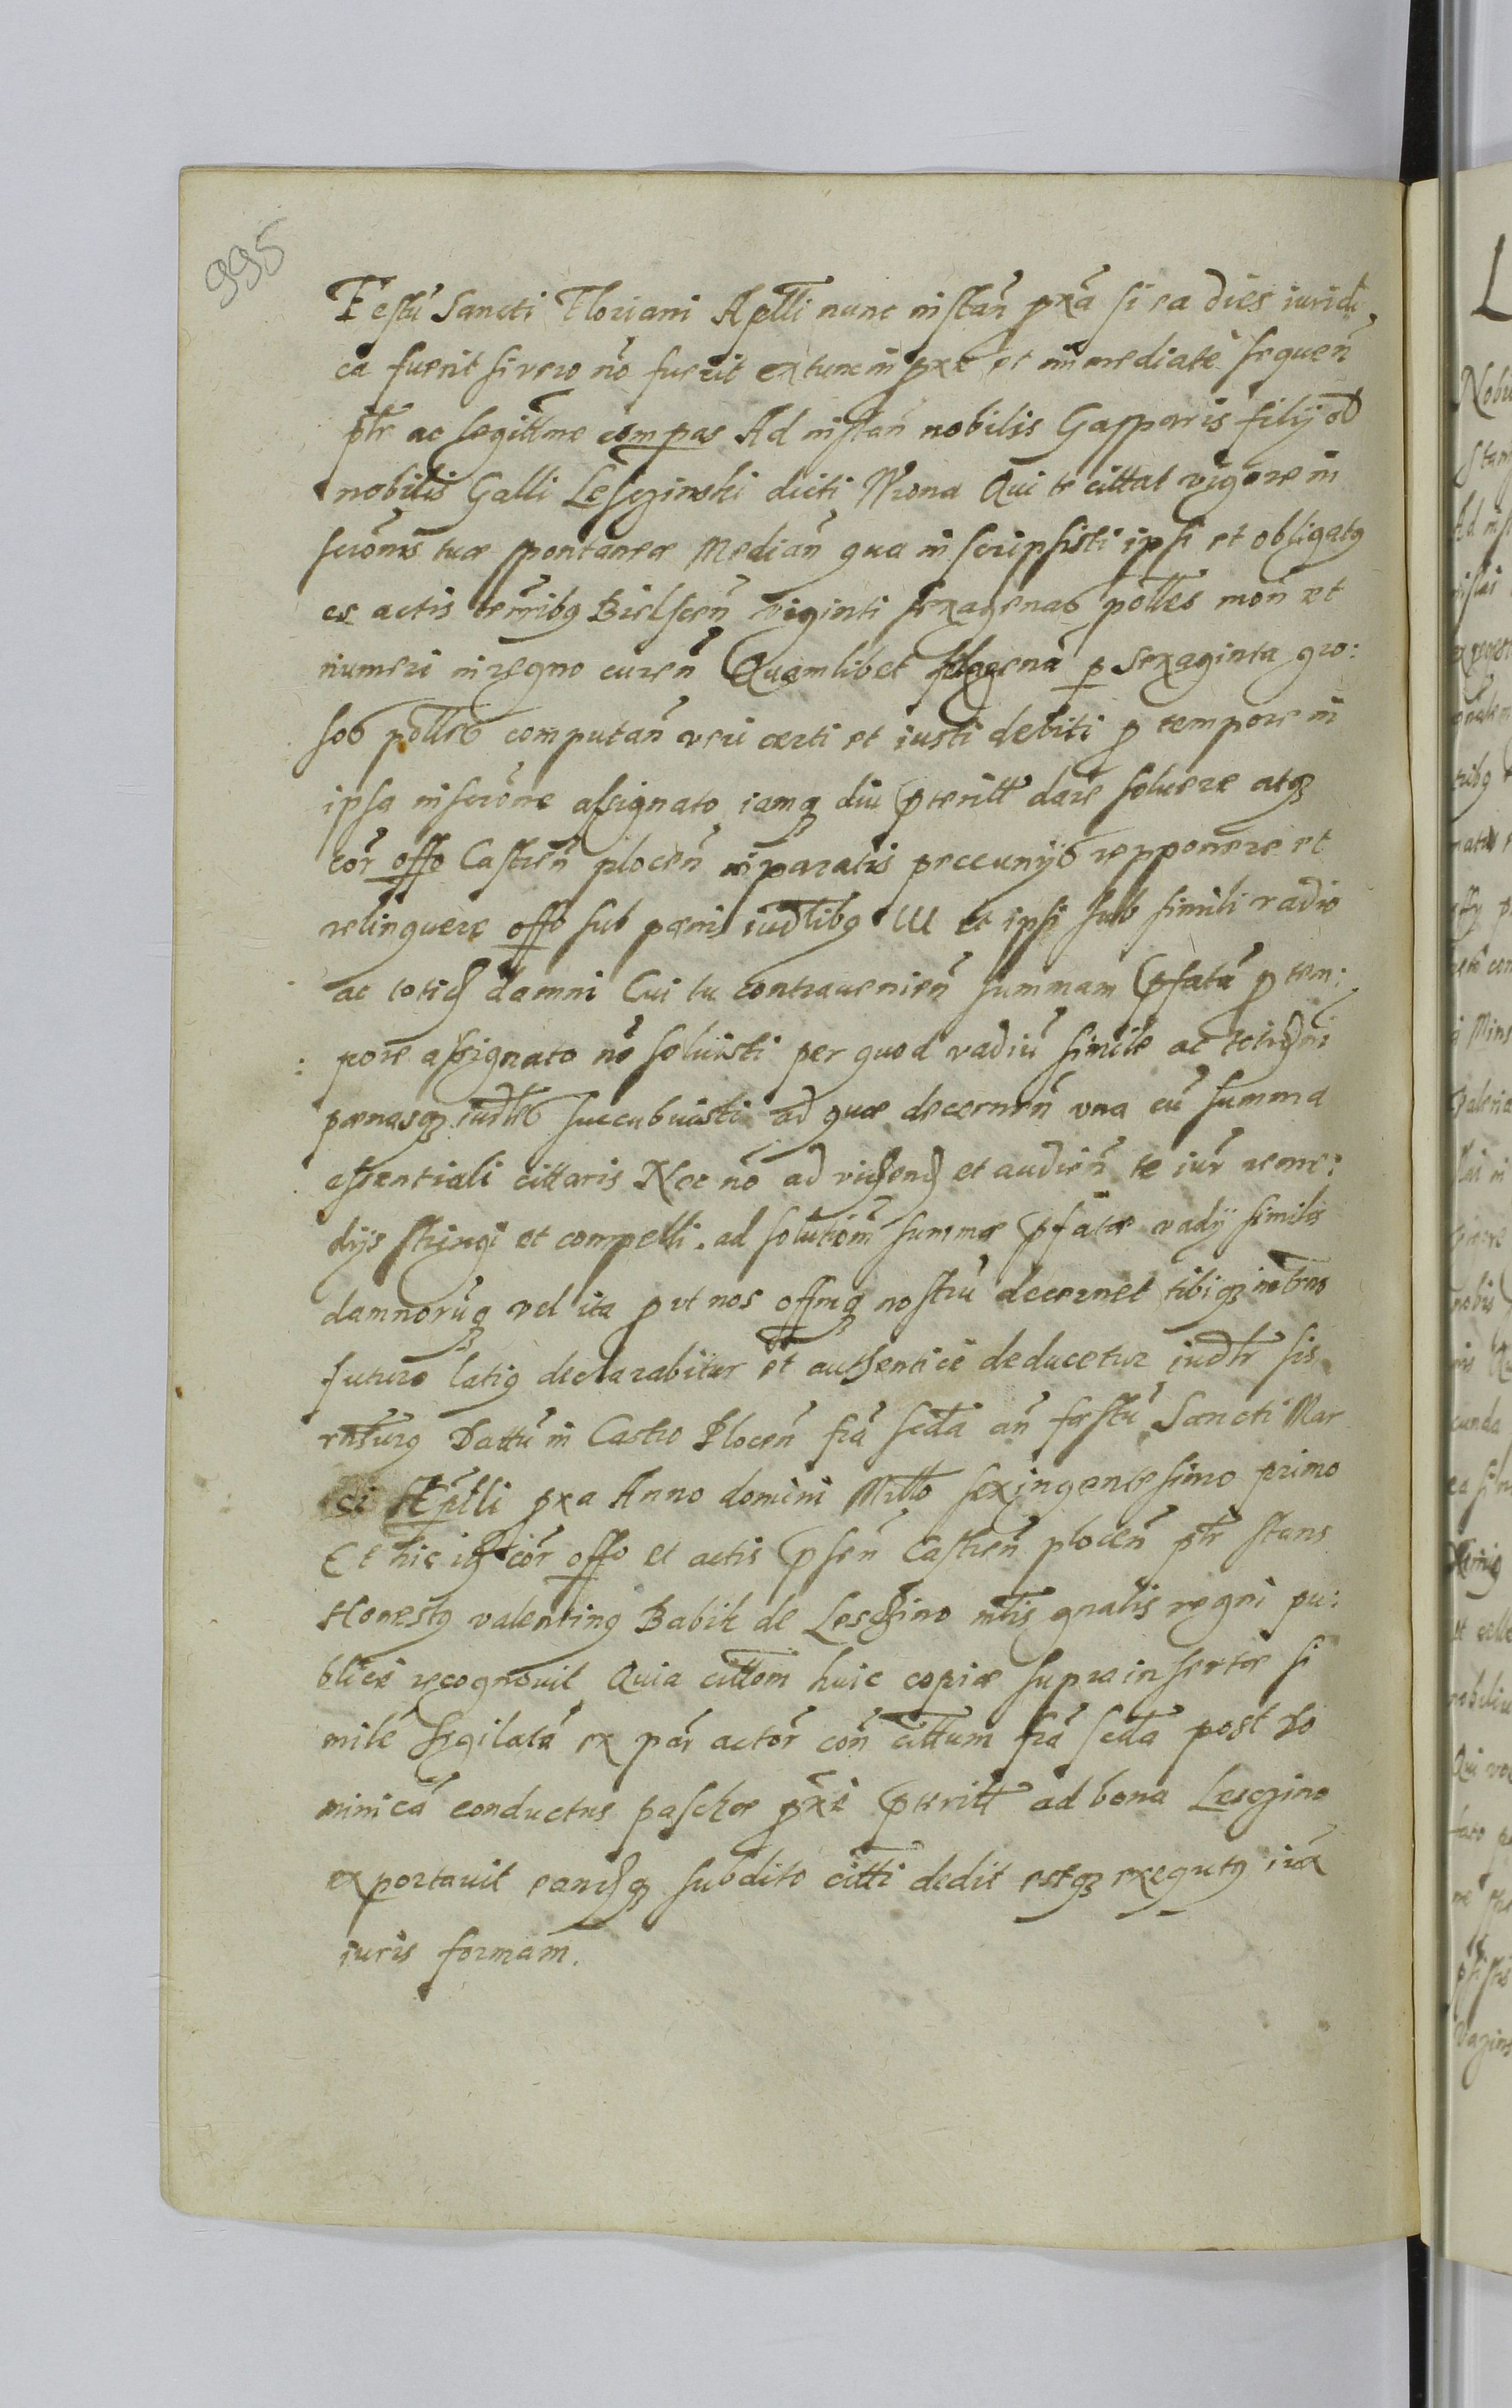 995
Festu Sancti Floriani Aplli nunc instan pxa si ea dies iuridi
ca fuerit si vero no fuerit extunc in pxe et immediate sequen
ptr ac legittme compas Ad instan nobilis Gasparis filij ol
nobilis Galli Lesczinski dicti Wrona Qui te cittat vigore in
scronis tuæ spontaneæ Median qua inscripsisti ipsi et obligatq
es actis terribq Bielscen viginti sexagenas polles mon et
numeri in regno curen Quamlibet sexagena p sexaginta gro:
sos polles computan veri certi et iusti debiti p tempore in
ipsa inscrone assignato iamq diu pteritt dare soluere atqz
cor offo Castren plocen in paratis peccunijs repponere et
relinquere offo sub pænis iudlibq W et ipsi sub simili vadio
ac totid damni Cui tu contravenien summam pfata p tem:
pore assignato no soluisti per quod vadiu simile ac totid
pænasqz iudles succubuisti ad quæ decernen vna cu summa
essentiali cittaris Nec no ad vidend et audien te iur reme:
dijs stringi et compelli. ad solutiom summæ pfatæ vadij similis
damnoruqz vel ita put nos offmqz nostru decernet tibiqz in tmo
futuro latiq declarabitur et authentice deducetur iudtr sis
rnsurq Dattu in Castro Plocen fra scda an festu Sancti Mar
ci Aplli pxa Anno domini Millo sexingentesimo primo
Et hic id cor offo et actis psen Castren plocen ptr stans
Honestq valentinq Babik de Lesczino mtis gnalis regni pu:
blice recognouit Quia cittom huic copiæ suprainsertæ si
mile sigilata ex par actor con cittum fra scda post do
minica conductus paschæ pxe pteritt ad bona Lesczino
exportauit eandqz subdito citti dedit estqz exequtq iux
iuris formam.